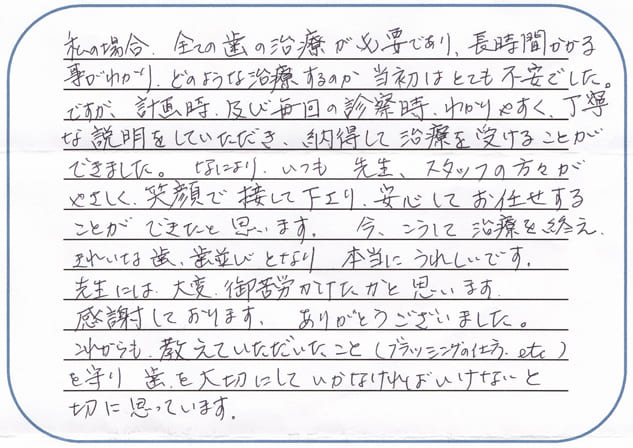 私の場合、全ての歯の治療が必要であり、長時間かかる
事がわかり、どのような治療するのか当初はとても不安でした。
ですが、計画時、及び毎回の診察時、わかりやすく、丁寧
な説明をしていただき、納得して治療を受けることが
できました。なにより、いつも先生、スタッフの方々が
やさしく、笑顔で接して下さり、安心してお任せする
ことができたと思います。今、こうして治療を終え、
きれいな歯、歯並びとなり本当にうれしいです。
先生には、大変、御苦労かけたかと思います。
感謝しております。ありがとうございました。
これからも、教えていただいたこと(ブラッシングの仕方、etc)
を守り歯を大切にしていかなければいけないと
切に思っています。